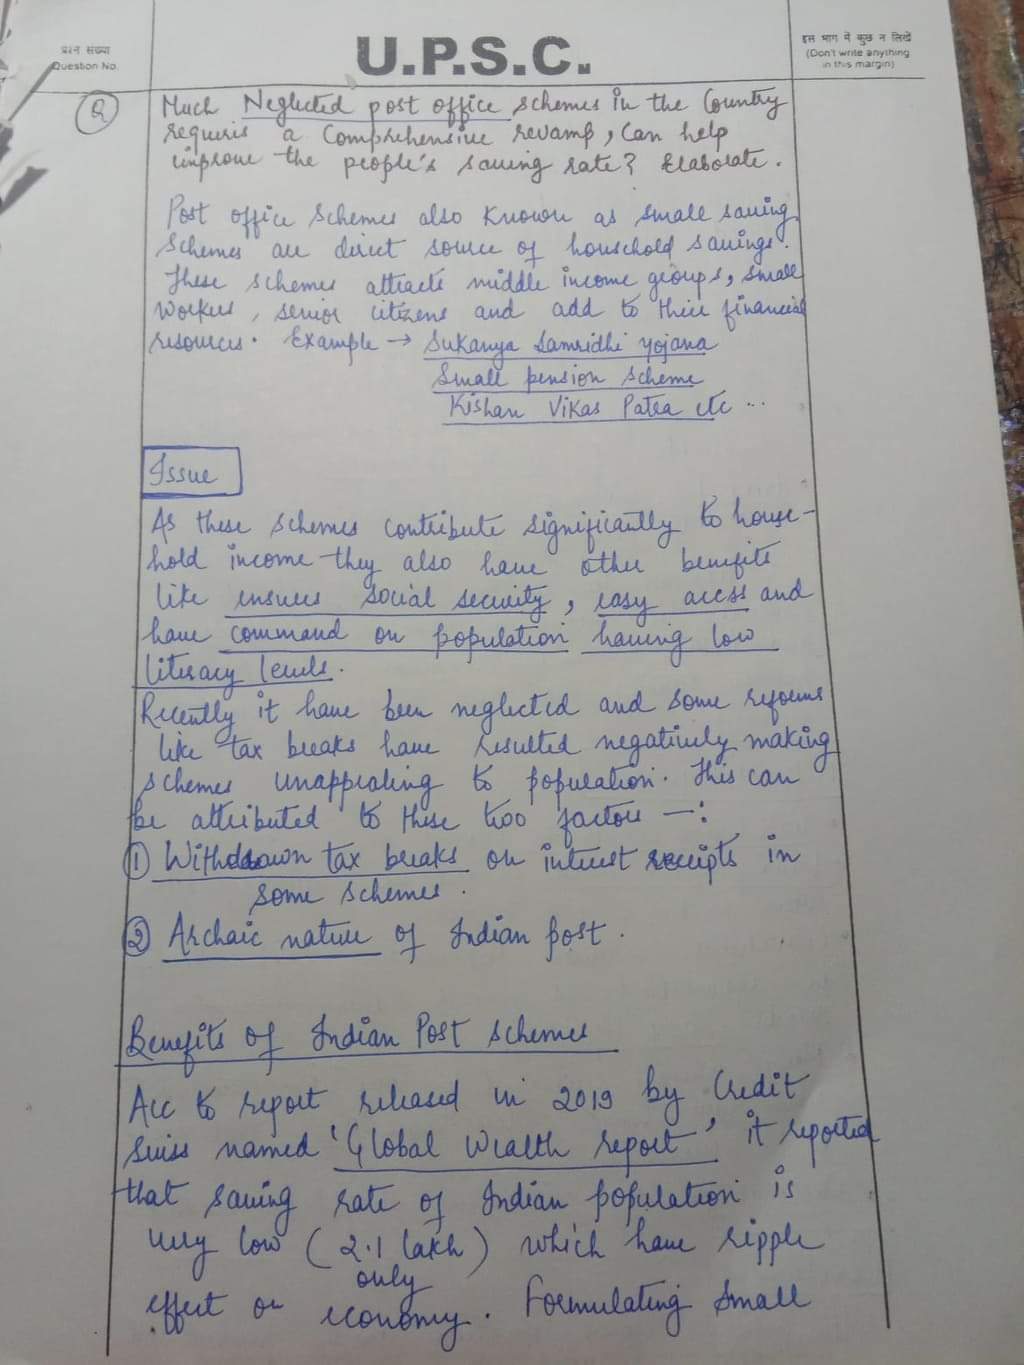 प्रश्न संख्या
Question No.
U.P.S.C.
इस भाग में कुछ न लिखें
(Don't write anything
in this margin)
2
Much Neglected post office schemes in the Country
requires a Comprehensive revamp, Can help
improve the people's saving rate? Elaborate.
Post office Schemes also Known as small saving
Schemes are direct source of household savings.
These schemes attracts middle income groups, small
workers, senior citizens and add to their financial
resources. Example → Sukanya Samridhi yojana
Small pension scheme
Kishan Vikas Patra etc ...
Issue
As these schemes contribute significantly to house-
hold income they also have other benefits
like ensures social security, easy access and
have command on population having low
literacy levels.
Recently it have been neglected and some reforms
like tax breaks have resulted negatively making
schemes unappealing to population. This can
be attributed to these two factors —:
① Withdrawn tax breaks on interest receipts in
some schemes.
② Archaic nature of Indian post.
Benefits of Indian Post schemes
Acc to report released in 2019 by Credit
Suiss named 'Global Wealth report' it reported
that saving rate of Indian population is
very low (2.1 lakh) which have ripple
only
effect on economy. Formulating Small